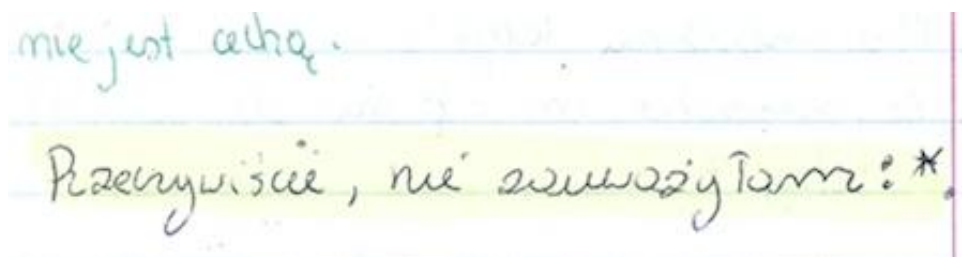 nie jest cechą.
Rzeczywiście, nie zauważyłam :*.